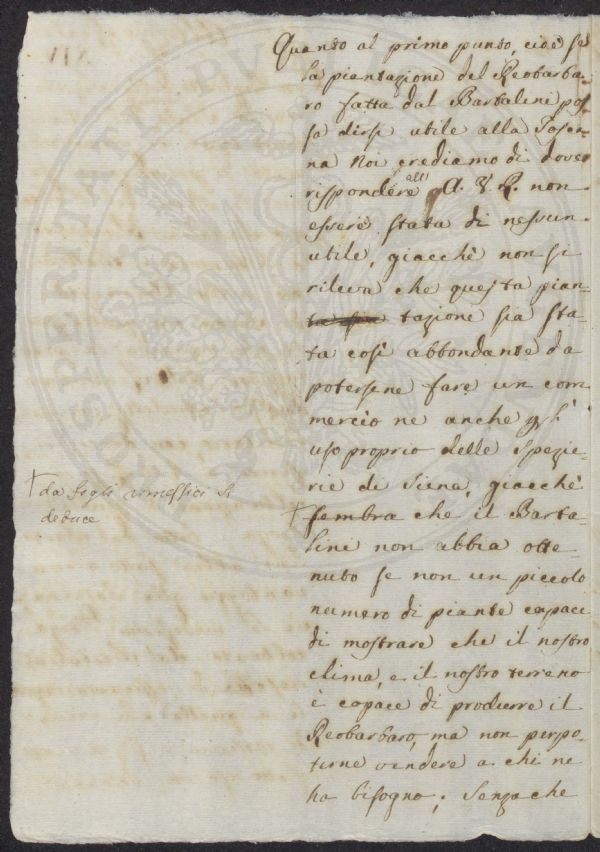 Quanto al primo punto, cioè se
la piantazione del Reobarba-
ro fatta dal Bartalini pos-
sa dirsi utile alla Tosca-
na Noi crediamo di dover
rispondere all' A. V. R. non
essere stata di nessun
utile, giacchè non si
rileva che questa pian-
tazione sia sta-
ta così abbondante da
potersene fare un com-
mercio ne anche gl'
uso proprio delle Spezie-
rie di Siena, giacchè
† sembra che il Barta-
lini non abbia otte-
nuto se non un piccolo
numero di piante capace
di mostrare che il nostro
clima, e il nostro terreno
è capace di produrre il
Reobarbaro, ma non per po-
terne vendere a chi ne
ha bisogno; Senza che
† da fogli rimessici si
deduce